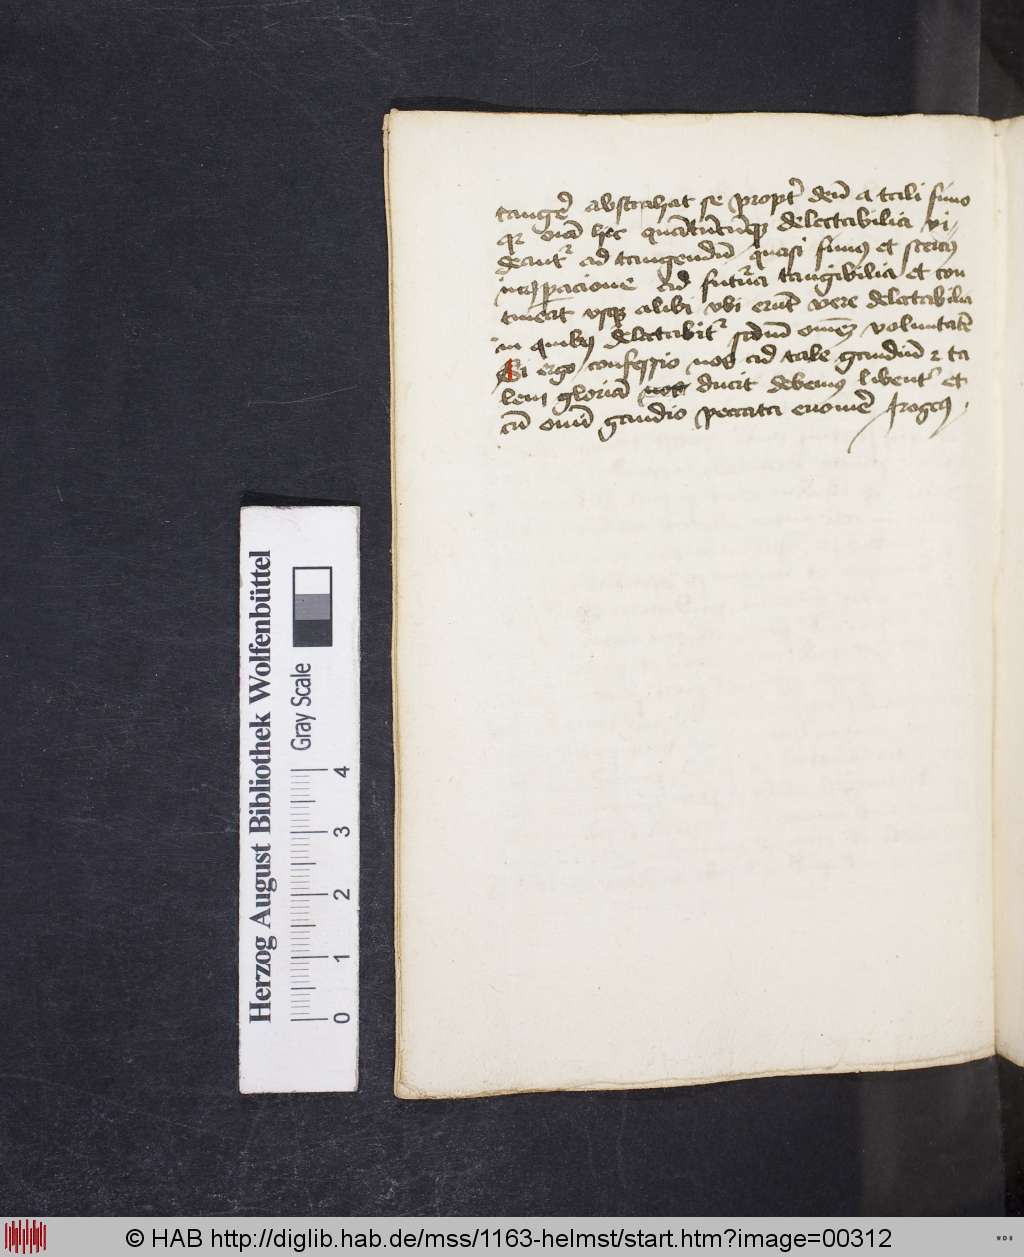 tangē abstrahat se propt̄ deū a tali fimo
qꝛ oīa hec quātūcūqꝫ delectabilia vi//
deant᷑ ad tangendū quasi fimꝰ et stercꝰ
ꝯpacione ad futura tangibilia et con
tineat vsqꝫ alibi vbi erūt vere delectabilia
in quibꝫ delectabit᷑ scdm̄ omēꝫ voluntatē
Si ergo confessio nos ad tale gaudiū ⁊ ta
lem gloriā nos ducit debemꝰ libent᷑ et
cū omī gaudio peccata euomē
Herzog August Bibliothek Wolfenbüttel
Gray Scale
0 1 2 3 4
© HAB http://diglib.hab.de/mss/1163-helmst/start.htm?image=00312